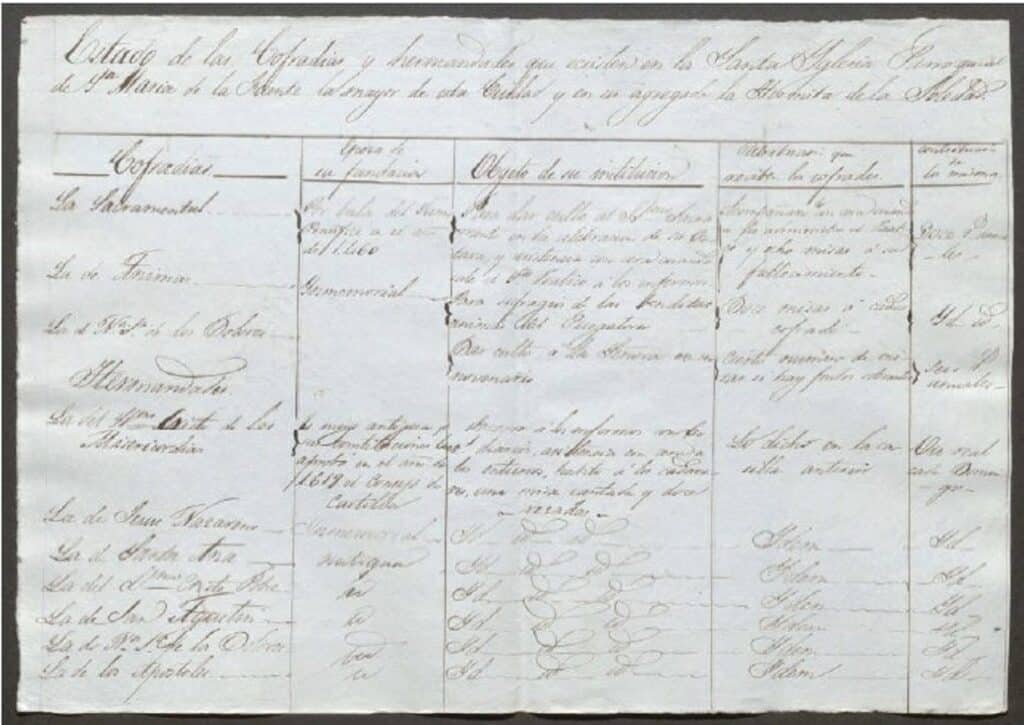 Estado de las Cofradias y hermandades que eciden en la Santa Yglesia Parroquial
de Sta Maria de la Fuente la mayor de esta Ciudad y en su agregada la Hermita de la Soledad.
Cofradias
Epoca de su fundacion
Objeto de su institucion
que reciben los cofrades
contribucion de los mismos
La Sacramental
Por bula del Sumo
Pontifice en el año
del 1.260
Para dar culto al Smo Sacra
mento en la celebracion de su Oc
tava, y asistencia con cera cuando
sale el Sto Viatico a los enfermos
Acompañan con cera cuando
se administra el Viati
co y ocho misas a su
fallecimiento
Doce
La de Animas
Ynmemorial
Para sufragio de las benditas
animas del Purgatorio
Doce misas á cada
cofrade
Yd id
La de Na Sa de los Dolores
Dar culto a la Señora en su
novenario
Cierto numero de mi
sas si hay fondos
Seis
anuales
Hermandades
La del Smo Cristo de las
Misericordias
Es muy antigua y
sus constituciones las
aprobó en el año de
el Consejo de
Castilla
Socorro á los enfermos con
diarios, asistencia con
los entierros, habito á los
una misa cantada y doce
rezadas
Lo dicho en la ca
silla anterior
Un real
cada Domin
go
La de Jesus Nazareno
Ynmemorial
Yd id id
Ydem
Yd
La de Santa Ana
antigua
Yd id id
Ydem
Yd
La del Smo Cristo
id
Yd id id
Ydem
Yd
La de San Agustin
id
Yd id id
Ydem
Yd
La de Na Sa de los Dolores
id
Yd id id
Ydem
Yd
La de los Apostoles
id
Yd id id
Ydem
Yd